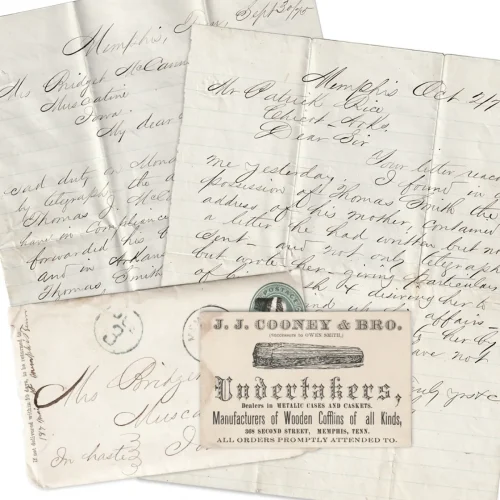 Memphis, Tenn, Sept 30/78
Mrs Bridget McCann
Muscatine
Iowa.
My dear
sad duty on Mond
by telegraph the
Thomas J. McC
have in compliance
forwarded his
and in
Thomas Smith
Memphis Oct 2/7
Mr Patrick Rice
Chicot Arks.
Dear Sir
Your letter reac
me yesterday. I found in
possession of Thomas Smith the
address of his mother, contained
a letter he had written but no
sent and not only telegraph
but wrote her giving particulars
of his & desiring her to
up affairs
her by
have not
truly yours
If not delivered within 10 days, to be returned to
POSTAGE
Mrs Bridget
Musca
I
In haste
J. J. COONEY & BRO.
(Successors to OWEN SMITH,)
Undertakers,
Dealers in METALIC CASES AND CASKETS.
Manufacturers of Wooden Coffins of all Kinds,
308 SECOND STREET, MEMPHIS, TENN.
ALL ORDERS PROMPTLY ATTENDED TO.